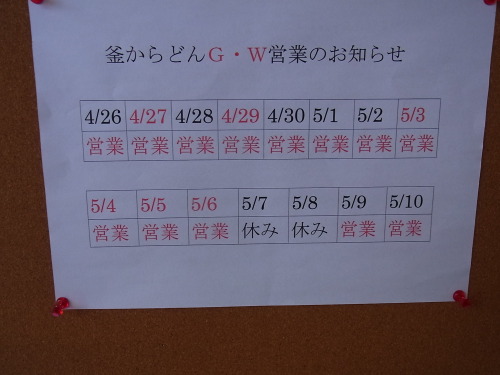 釜からどんG・W営業のお知らせ
4/26 4/27 4/28 4/29 4/30 5/1 5/2 5/3
営業 営業 営業 営業 営業 営業 営業 営業
5/4 5/5 5/6 5/7 5/8 5/9 5/10
営業 営業 営業 休み 休み 営業 営業